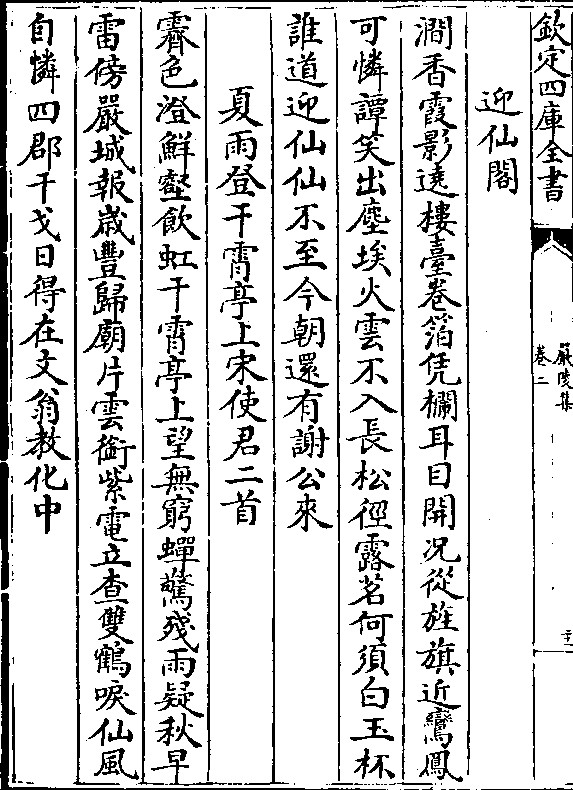 欽定四庫全書
嚴陵集
卷二
迎仙閣
澗香霞影遶樓臺卷箔凭欄耳目開况從旌旗近鸞鳳
可憐譚笑出塵埃火雲不入長松徑露茗何須白玉杯
誰道迎仙仙不至今朝還有謝公來
夏雨登干霄亭上宋使君二首
霽色澄鮮壑飲虹干霄亭上望無窮蟬驚殘雨疑秋早
雷傍嚴城報歲豐歸廟片雲銜紫電立查雙鶴唳仙風
自憐四郡干戈日得在文翁教化中